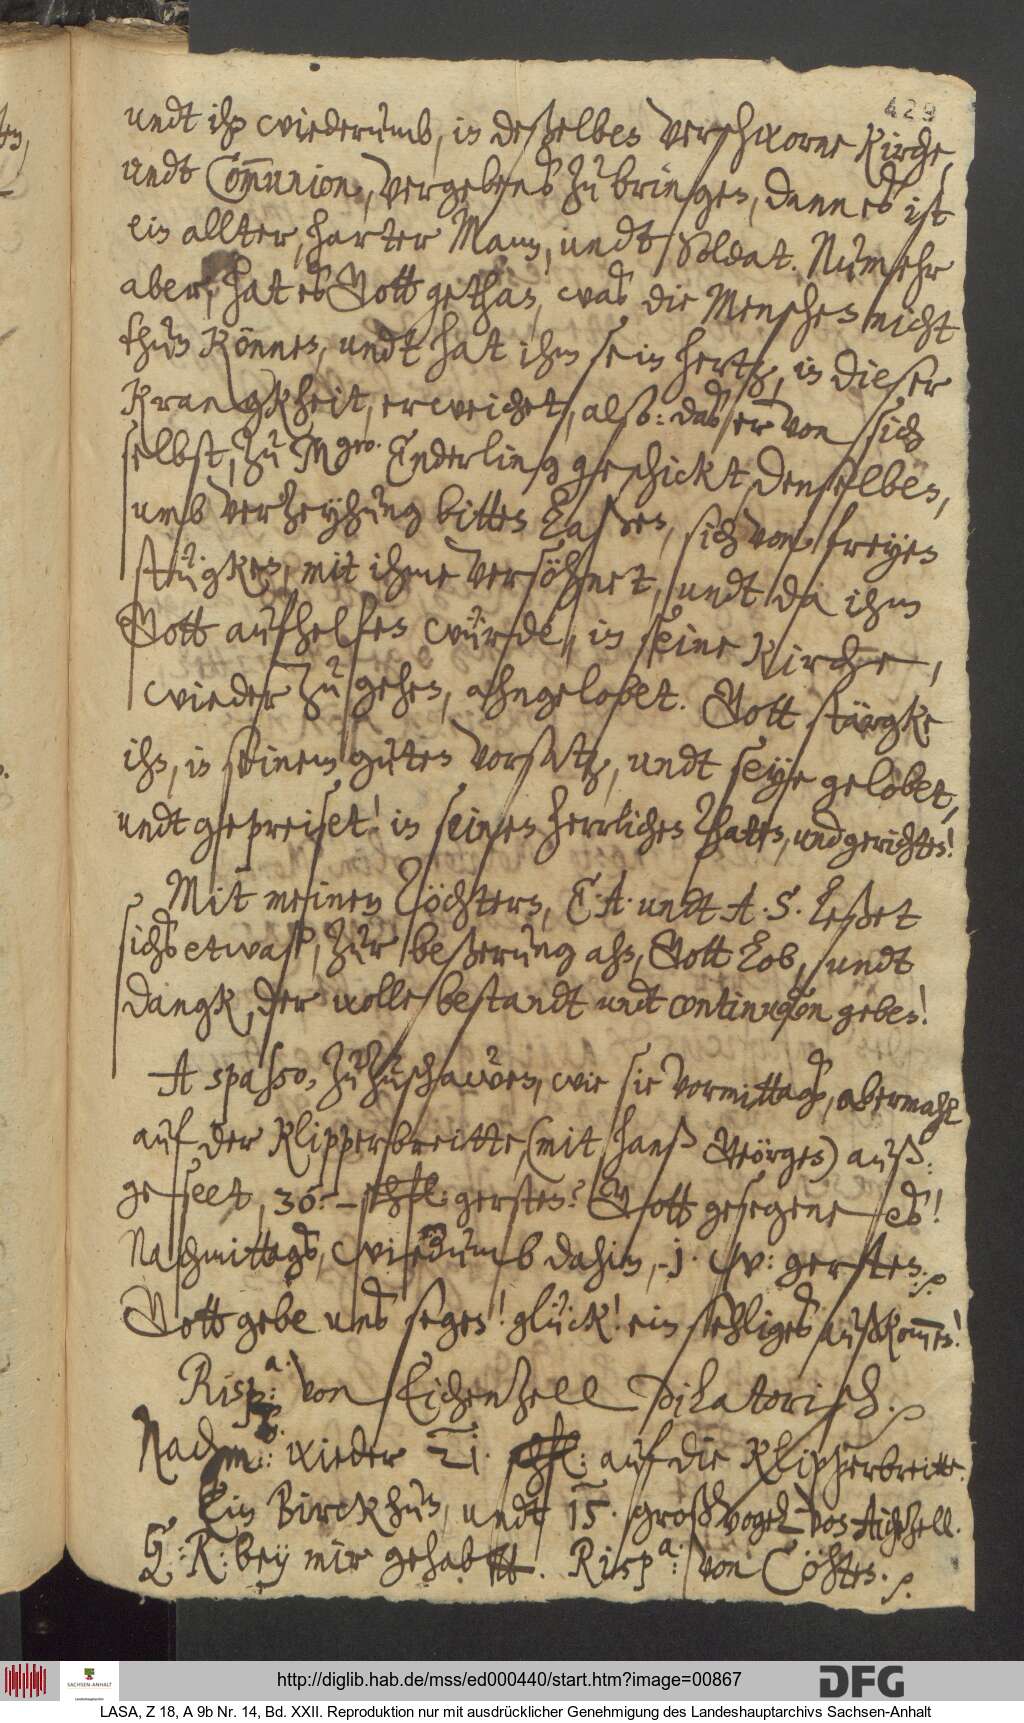 429
undt ihn wiederumb, in deßelben verschworne Kirche,
undt Com̄union, vergebens zu bringen, dann es ist
ein allter, harter Mann, undt Soldat. Numehr
aber, hat es Gott gethan, was die Menschen nicht
thun können, undt hat ihm sein hertz, in dieser
Krangkheit, erweichet, also: das er von sich
selbst, zu Mgro. Enderling geschickt, denselben,
umb verzeyhung bitten laßen, sich von freyen
stügken, mit ihme versöhnet, undt da ihm
Gott aufhelfen würde, in seine Kirche,
wieder zu gehen, ahngelobet. Gott stärgke
ihn, in seinem guten vorsatz, undt seye gelobet,
undt gepreiset! in seinen herrlichen Thaten, und gerichten!
Mit meinen Töchtern, E. A. undt A. S. leßet
sichs etwaß, zur beßerung ahn, Gott lob, undt
dangk, der wolle bestandt undt continuation geben!
A spasso, zuzuschawen, wie sie vormittags, abermahl
auf der Klipperbreitte, (mit Hanß Geörgen) auß:
geseet, 36 – schfl: gersten? Gott gesegene es!
Nachmittags, wiedrumb dahin, 1. w: gersten.
Gott gebe uns segen! glück! ein sehliges außkom̄en!
Rispa: von Eichenzell dilatorisch.
Nachm: wieder 21. schfl: auf die Klipperbreitte.
Ein Birckhun, undt 15. großvogel von Aichzell.
G: K: bey mir gehabtt. Rispa: von Cöhten.
http://diglib.hab.de/mss/ed000440/start.htm?image=00867
SACHSEN-ANHALT
Landeshauptarchiv
DFG
LASA, Z 18, A 9b Nr. 14, Bd. XXII. Reproduktion nur mit ausdrücklicher Genehmigung des Landeshauptarchivs Sachsen-Anhalt